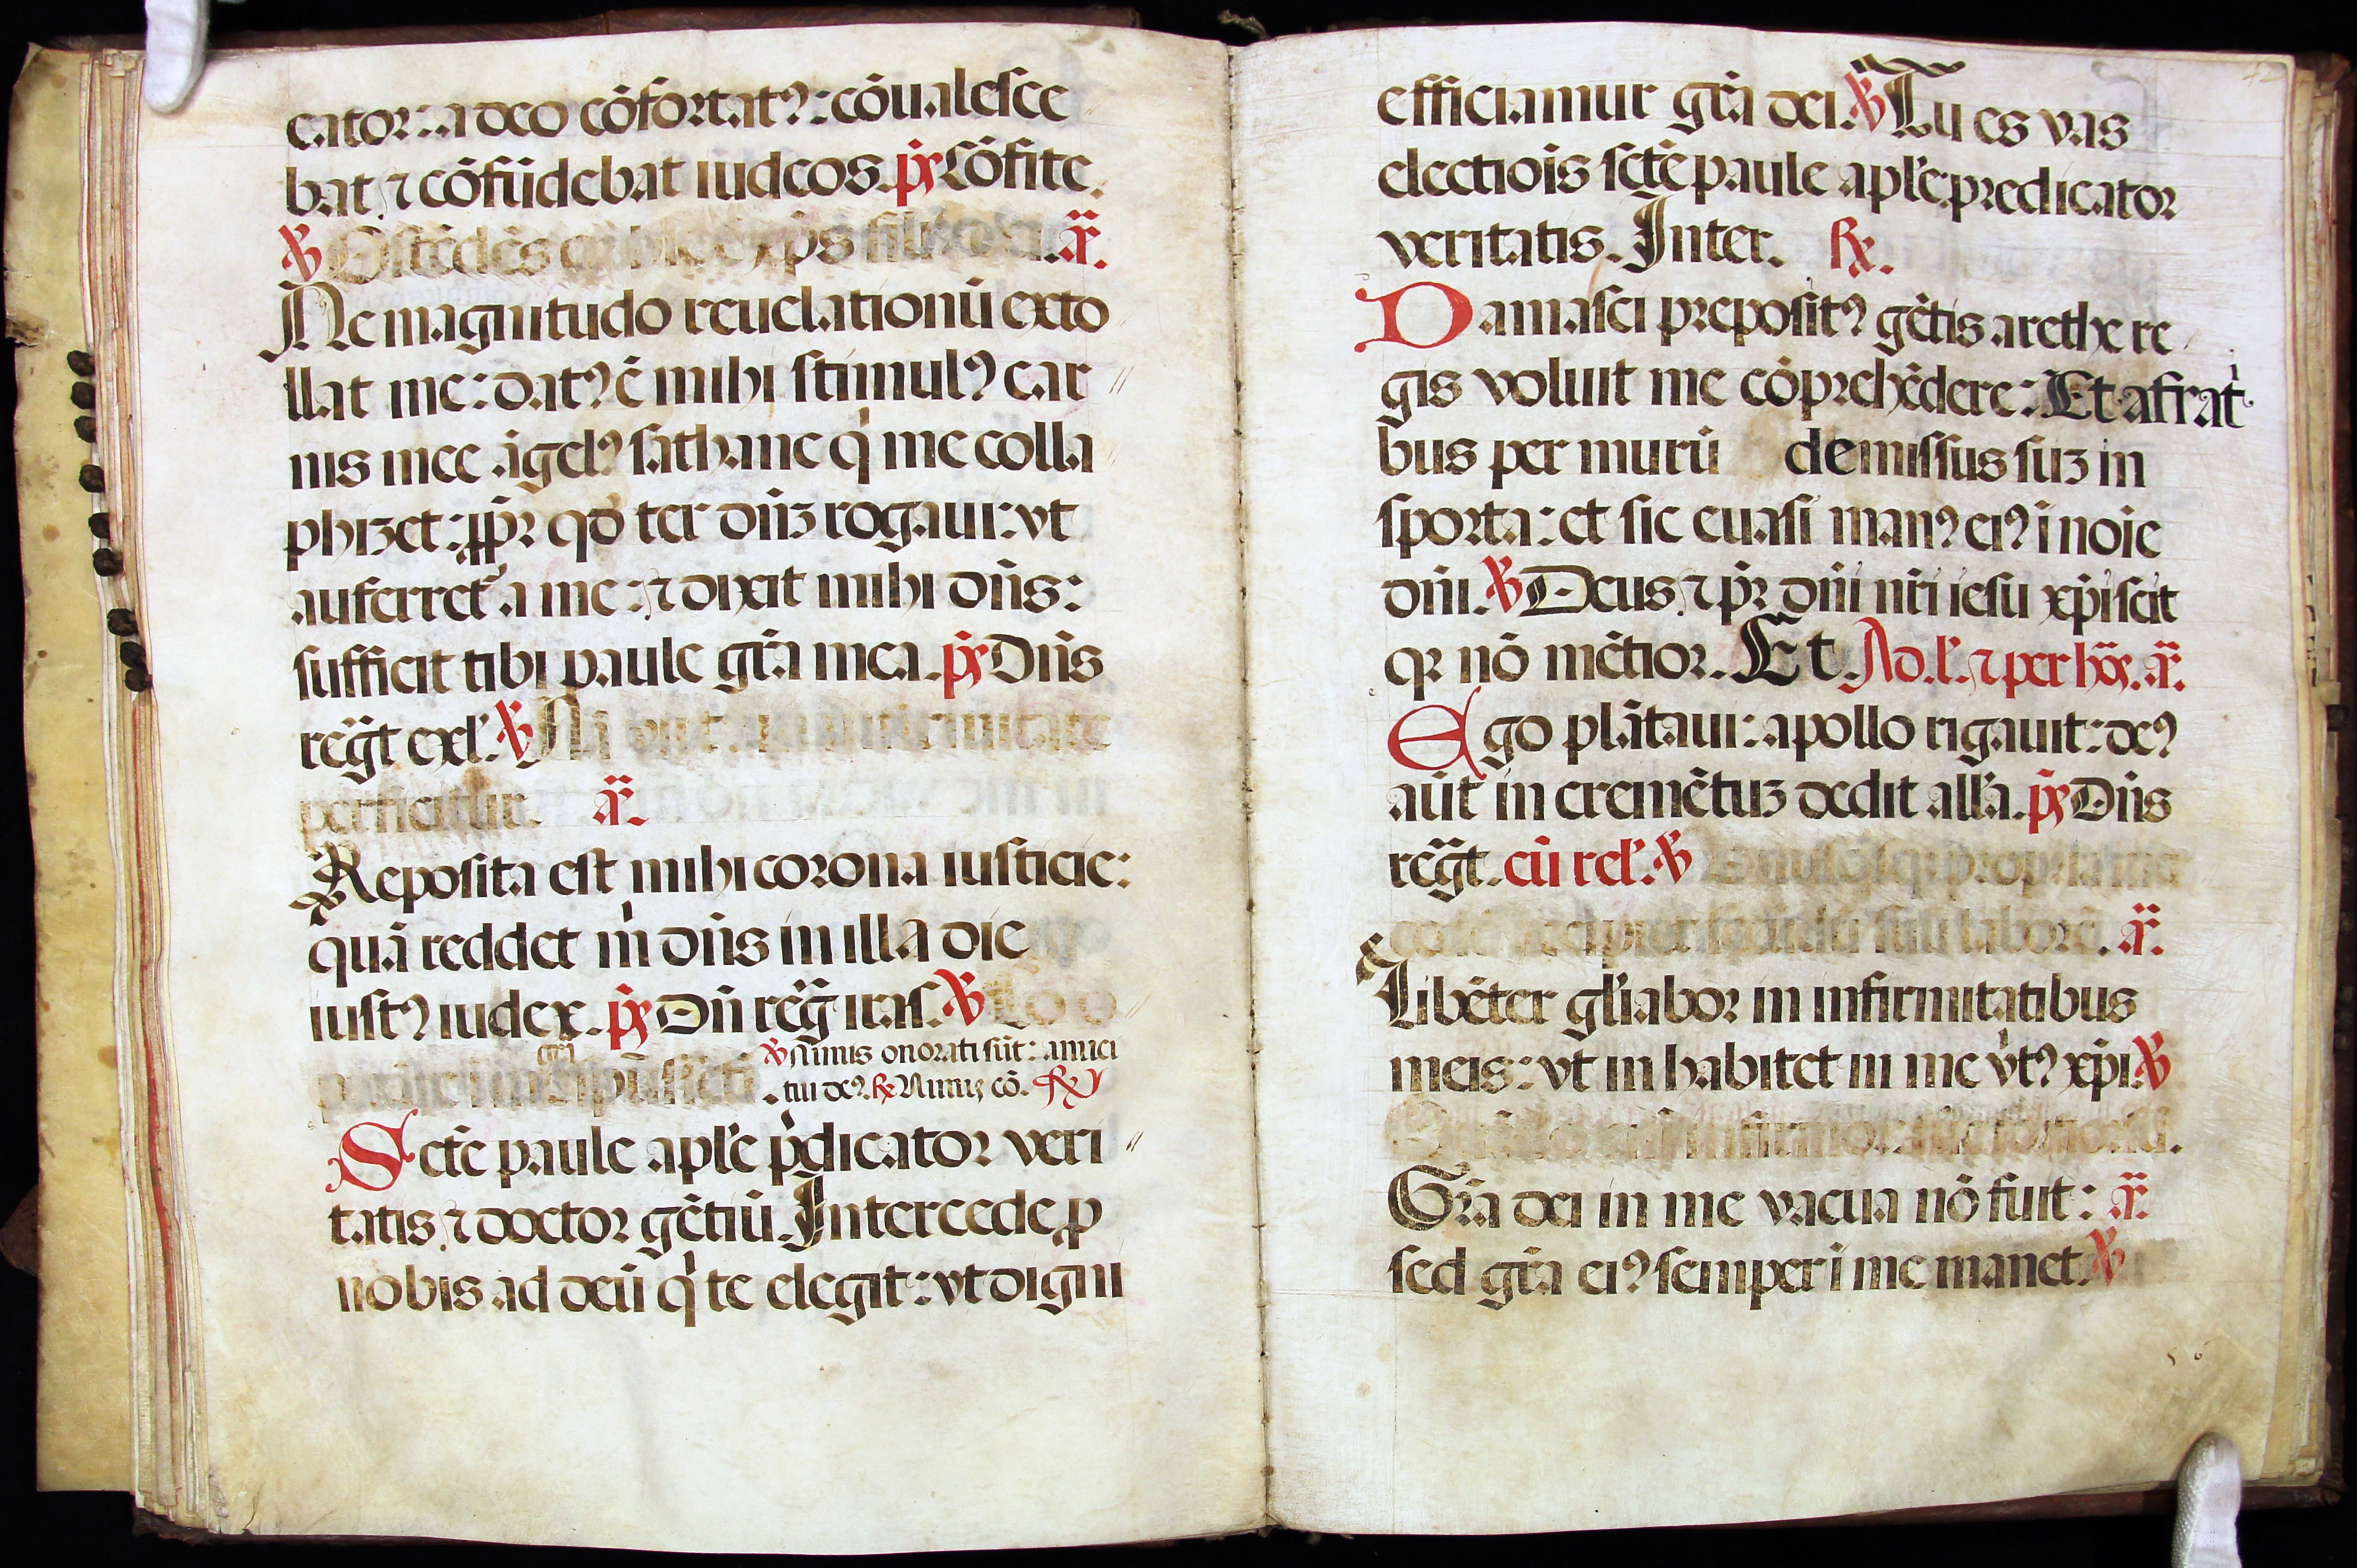 cator: a deo cōfortatꝰ: cōualesce
bat ⁊ cōfūdebat iudeos. p̄s Cōfite.
℣ Ostēdēs xp̄s ā.
Ne magnitudo reuelationū exto
llat me: datꝰ ē mihi stimulꝰ car
nis mee āgelꝰ sathane qͥ me colla
phizet: ꝓpr̄ qd̄ ter dn̄ꝫ rogaui: vt
auferret᷑ a me: ⁊ dixit mihi dn̄s:
sufficit tibi paule gr̄a mea. p̄s Dn̄s
reḡt exl'. ℣ Nā
perficitur. ā.
Reposita est mihi corona iusticie:
quā reddet mͥ dn̄s in illa die
iustꝰ iudex. p̄s Dn̄ reḡ iras. ℣
℣ Nimis onorati sūt: amici
tui deꝰ. ℞ Nimiꝫ cō. ℞
Sct̄e paule apl'e p̄dicator veri
tatis ⁊ doctor gētiū. Intercede ꝓ
nobis ad deū qͥ te elegit: vt digni
efficiamur gr̄a dei. ℣ Tu es vas
electiōis sct̄e paule apl'e predicator
veritatis. Inter. ℞.
Damasci prepositꝰ gētis arethe re
gis voluit me cōprehēdere: Et a fratͥ
bus per murū demissus suꝫ in
sporta: et sic euasi manꝰ eiꝰ ī noīe
dn̄i. ℣ Deus ⁊ pr̄ dn̄i nr̄i iesu xp̄i scit
qꝛ nō mētior. Et. Ad .l'. ⁊ per hōs. ā.
Ego plātaui: apollo rigauit: deꝰ
aūt in cremētuꝫ dedit all'a. p̄s Dn̄s
reḡt. cū rel'. ℣
laborē. ā.
Libēter gl'iabor in infirmitatibus
meis: vt in habitet in me v̓tꝰ xp̄i ℣
Gr̄a dei in me vacua nō fuit: ā.
sed gr̄a eiꝰ semper ī me manet. ℣